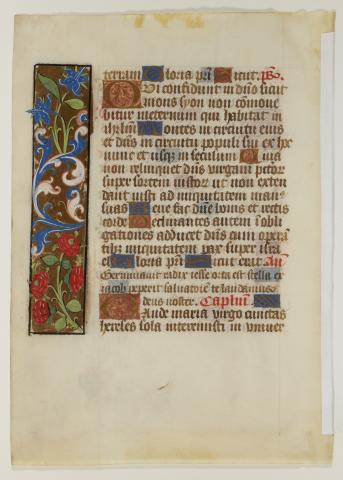 terram Gloria pri Sicut. ps.
Qui confidunt in dno sicut
mons syon non commoue
bitur ineternum qui habitat in
ihrlm Montes in circuitu eius
et dns in circuitu populi sui ex hoc
nunc et usqz in seculum Quia
non relinquet dns virgam pctor
super sortem iustor ut non exten
dant iusti ad iniquitatem man⁹
suas Bene fac dne bonis et rectis
corde Declinantes autem in obli
gationes adducet dns cum operā
tibz iniquitatem pax super isra
el Gloria pri Sicut erat An
Germinauit radix iesse orta est stella ex
iacob peperit saluatorē te laudamus
deus noster. Caplm
Gaude maria virgo cunctas
hereses sola interemisti in vniuer